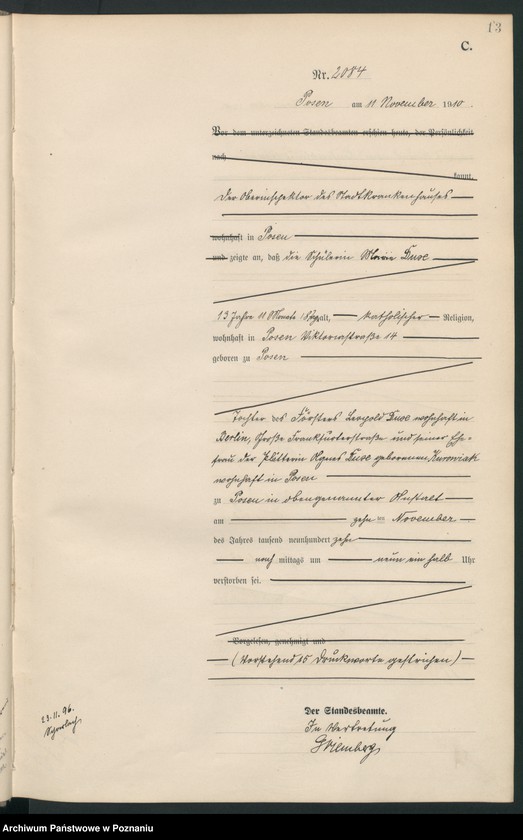 13
C.
Nr. 2084
Posen am 11 November 1910
Vor dem unterzeichneten Standesbeamten erschien heute, der Persönlichkeit
nach
kannt,
Der Oberinspektor des Stadtkrankenhauses
wohnhaft in Posen
und zeigte an, daß die Schülerin Marie Duse
13 Jahre 11 Monate alt, katholischer Religion,
wohnhaft in Posen Viktoriastraße 14
geboren zu Posen
Tochter des Försters Leopold Duse wohnhaft in
Berlin, Große Frankfurterstraße und seiner Ehe-
frau der Plätterin Agnes Duse geborenen
wohnhaft in Posen
zu Posen in obengenannter Anstalt
am zehn ten November
des Jahres tausend neunhundert zehn
nach mittags um neun ein halb Uhr
verstorben sei.
Vorgelesen, genehmigt und
(Vorstehend 15 Druckworte gestrichen)
Der Standesbeamte.
In Vertretung
23.11.96.
Archiwum Państwowe w Poznaniu